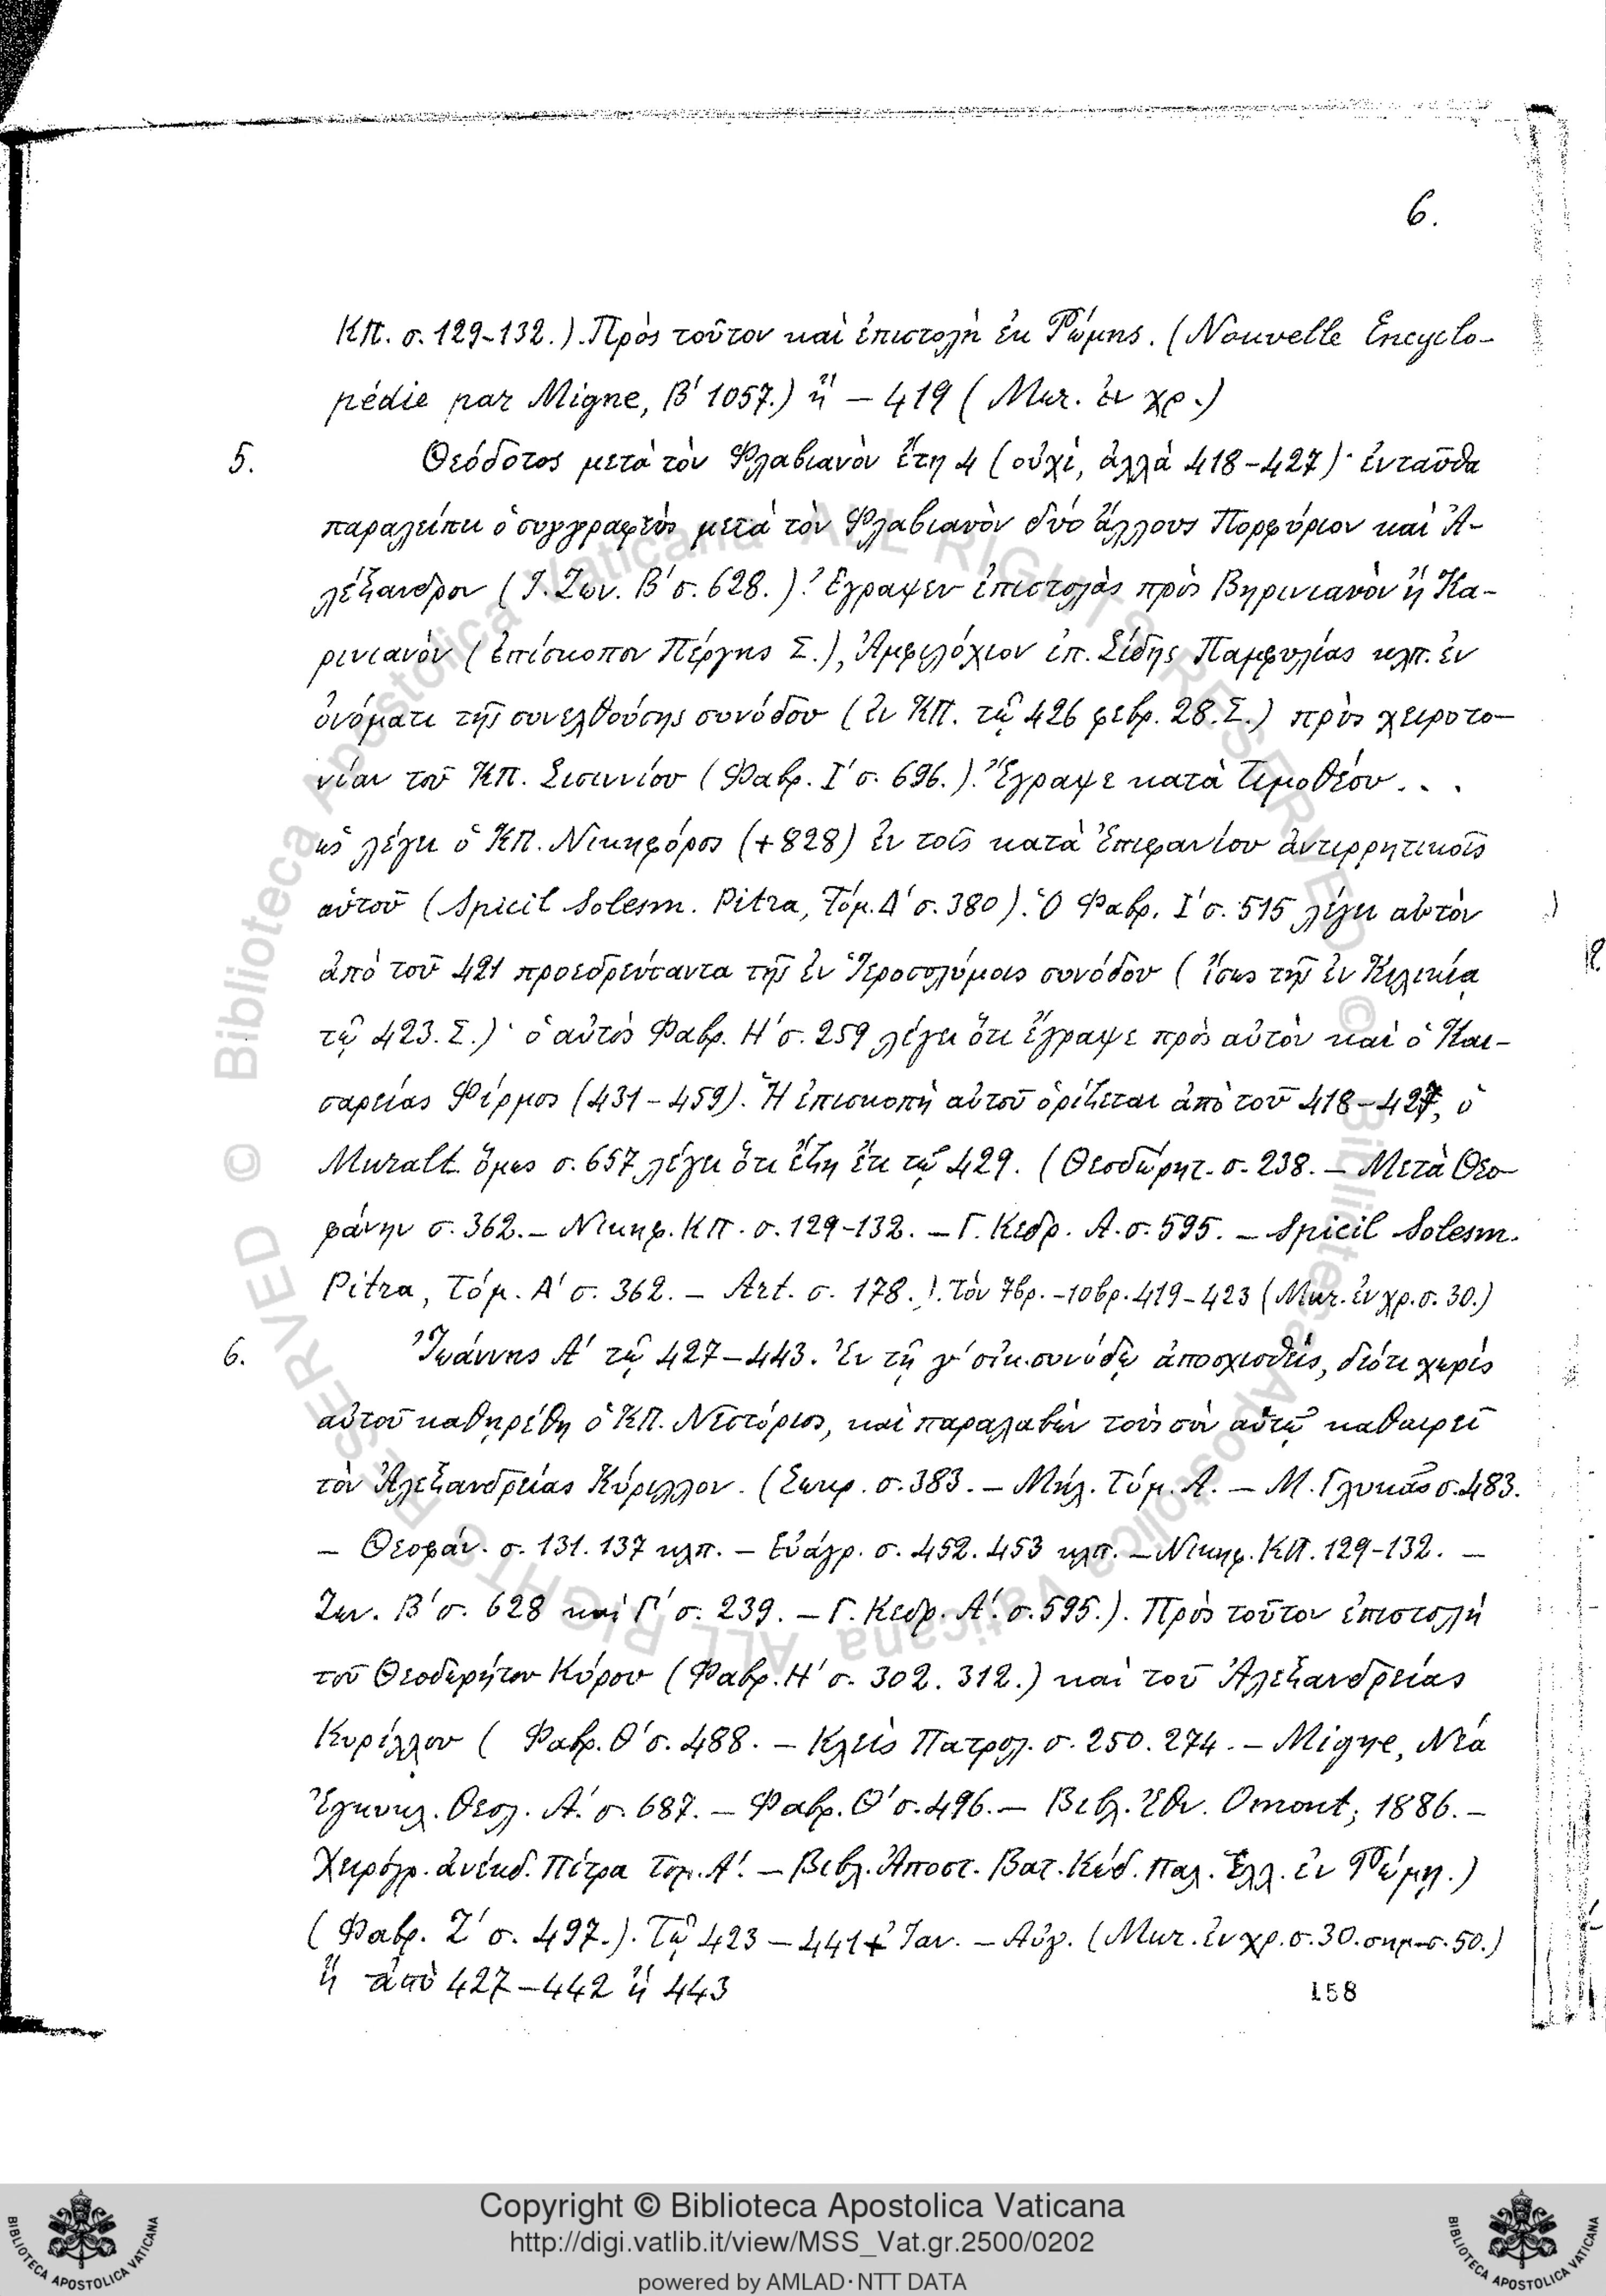 6.
ΚΠ. σ. 129-132.). Πρὸς τοῦτον καὶ ἐπιστολὴ ἐκ Ῥώμης. (Nouvelle Encyclo-
pédie par Migne, Β΄ 1057.) ἢ – 419 (Mur. ἐν χρ.)
5. Θεόδοτος μετὰ τὸν Φλαβιανὸν ἔτη 4 (οὐχὶ, ἀλλὰ 418-427)· ἐνταῦθα
παραλείπει ὁ συγγραφεὺς μετὰ τὸν Φλαβιανὸν δύο ἄλλους Πορφύριον καὶ Ἀ-
λέξανδρον (Ἰ. Ζων. Β΄ σ. 628.). Ἔγραψεν ἐπιστολὰς πρὸς Βηρινιανὸν ἢ Κα-
ρινιανὸν (ἐπίσκοπον Πέργης Σ.), Ἀμφιλόχιον ἐπ. Σίδης Παμφυλίας κλπ. ἐν
ὀνόματι τῆς συνελθούσης συνόδου (ἐν ΚΠ. τῷ 426 φεβρ. 28. Σ.) πρὸς χειροτο-
νίαν τοῦ ΚΠ. Σισιννίου (Φαβρ. Ι΄ σ. 696.). Ἔγραψε κατὰ Τιμοθέου . . .
ὡς λέγει ὁ ΚΠ. Νικηφόρος (+828) ἐν τοῖς κατὰ Ἐπιφανίου ἀντιρρητικοῖς
αὐτοῦ (Spicil Solesm. Pitra, Τόμ. Δ΄ σ. 380). Ὁ Φαβρ. Ι΄ σ. 515 λέγει αὐτὸν
ἀπὸ τοῦ 421 προεδρεύσαντα τῆς ἐν Ἱεροσολύμοις συνόδου (ἴσως τῆς ἐν Κιλικίᾳ
τῷ 423. Σ.)· ὁ αὐτὸς Φαβρ. Η΄ σ. 259 λέγει ὅτι ἔγραψε πρὸς αὐτὸν καὶ ὁ Και-
σαρείας Φίρμος (431-459). Ἡ ἐπισκοπὴ αὐτοῦ ὁρίζεται ἀπὸ τοῦ 418-427, ὁ
Muralt. ὅμως σ. 657 λέγει ὅτι ἔζη ἔτι τῷ 429. (Θεοδώρητ. σ. 238. – Μετὰ Θεο-
φάνην σ. 362. – Νικηφ. ΚΠ. σ. 129-132. – Γ. Κεδρ. Α. σ. 595. – Spicil Solesm.
Pitra, Τόμ. Α΄ σ. 362. – Art. σ. 178.). Τὸν 7βρ. -10βρ. 419-423 (Mur. ἐν χρ. σ. 30.)
6. Ἰωάννης Α΄ τῷ 427-443. Ἐν τῇ γ΄ οἰκ. συνόδῳ ἀποσχισθεὶς, διότι χωρὶς
αὐτοῦ καθῃρέθη ὁ ΚΠ. Νεστόριος, καὶ παραλαβὼν τοὺς σὺν αὐτῷ καθαιρεῖ
τὸν Ἀλεξανδρείας Κύριλλον. (Σωκρ. σ. 383. – Μήλ. Τόμ. Α. – Μ. Γλυκᾶς σ. 483.
– Θεοφάν. σ. 131. 137 κλπ. – Εὐάγρ. σ. 452. 453 κλπ. – Νικηφ. ΚΠ. 129-132. –
Ζων. Β΄ σ. 628 καὶ Γ΄ σ. 239. – Γ. Κεδρ. Α΄. σ. 595.). Πρὸς τοῦτον ἐπιστολὴ
τοῦ Θεοδωρήτου Κύρου (Φαβρ. Η΄ σ. 302. 312.) καὶ τοῦ Ἀλεξανδρείας
Κυρίλλου (Φαβρ. Θ΄ σ. 488. – Κλεὶς Πατρολ. σ. 250. 274. – Migne, Νέα
Ἐγκυκλ. Θεολ. Α΄. σ. 687. – Φαβρ. Θ΄ σ. 496. – Βιβλ. Ἐθν. Omont, 1886. –
Χειρόγρ. ἀνέκδ. Πίτρα Τομ. Α΄. – Βιβλ. Ἀποστ. Βατ. Κώδ. Παλ. Ἑλλ. ἐν Ῥώμῃ.)
(Φαβρ. Ζ΄ σ. 497.). Τῷ 423 – 441 + Ἰαν. – Αὐγ. (Mur. ἐν χρ. σ. 30. σημ. σ. 50.)
ἢ ἀπὸ 427-442 ἢ 443
158
© Biblioteca Apostolica Vaticana ALL RIGHTS RESERVED
Copyright © Biblioteca Apostolica Vaticana
http://digi.vatlib.it/view/MSS_Vat.gr.2500/0202
powered by AMLAD·NTT DATA
BIBLIOTECA APOSTOLICA VATICANA
BIBLIOTECA APOSTOLICA VATICANA